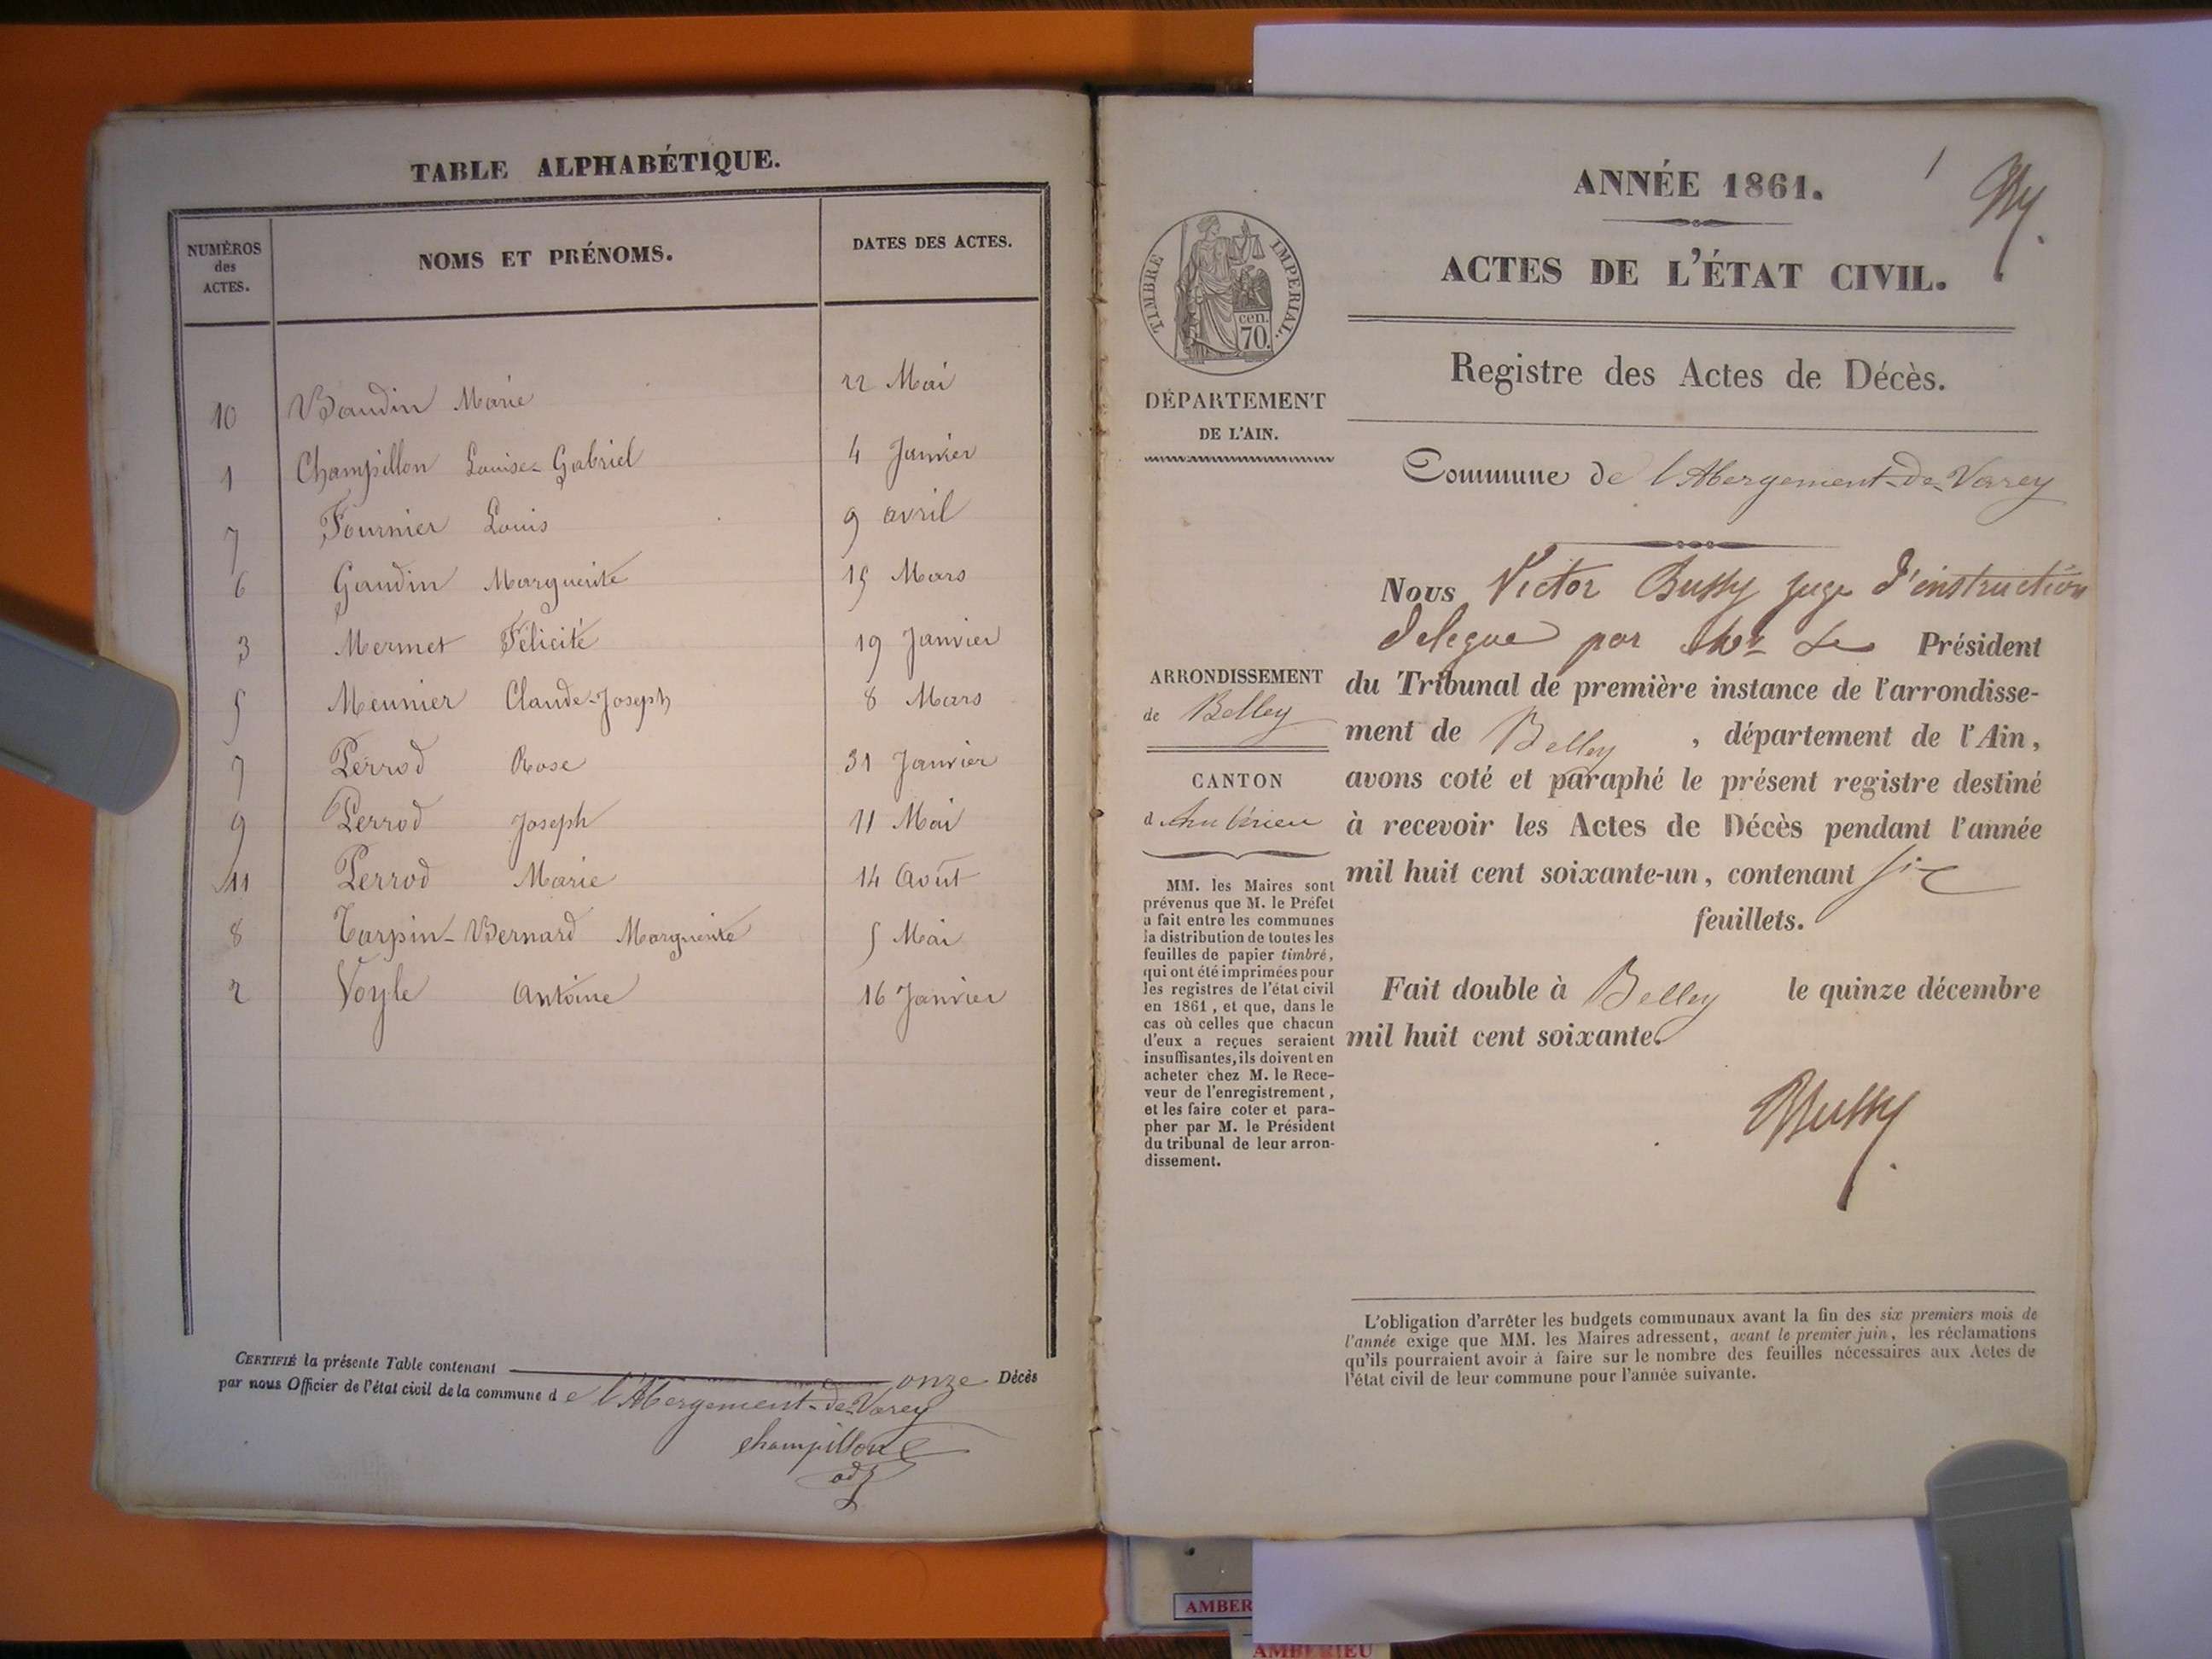 TABLE ALPHABÉTIQUE.
NUMÉROS des ACTES.
NOMS ET PRÉNOMS.
DATES DES ACTES.
10 Baudin Marie 22 Mai
1 Champillon Louise-Gabriel 4 Janvier
7 Fournier Louis 9 avril
6 Gaudin Marguerite 15 Mars
3 Mermet Félicité 19 Janvier
5 Meunier Claude-Joseph 8 Mars
7 Perrod Rose 31 Janvier
9 Perrod Joseph 11 Mai
11 Perrod Marie 14 Août
8 Tarpin-Bernard Marguerite 5 Mai
2 Voyle Antoine 16 Janvier
CERTIFIÉ la présente Table contenant onze Décès
par nous Officier de l'état civil de la commune de l'Abergement-de-Varey
Champillon
adj
1
ANNÉE 1861.
ACTES DE L'ÉTAT CIVIL.
TIMBRE IMPERIAL.
cen. 70.
Registre des Actes de Décès.
DÉPARTEMENT
DE L'AIN.
Commune de l'Abergement-de-Varey
Nous Victor Bussy juge d'instruction
delegue par Mr Le Président
du Tribunal de première instance de l'arrondisse-
ment de Belley, département de l'Ain,
avons coté et paraphé le présent registre destiné
à recevoir les Actes de Décès pendant l'année
mil huit cent soixante-un, contenant six
feuillets.
Fait double à Belley le quinze décembre
mil huit cent soixante.
Bussy
ARRONDISSEMENT
de Belley
CANTON
d'Ambérieu
MM. les Maires sont
prévenus que M. le Préfet
a fait entre les communes
la distribution de toutes les
feuilles de papier timbré,
qui ont été imprimées pour
les registres de l'état civil
en 1861, et que, dans le
cas où celles que chacun
d'eux a reçues seraient
insuffisantes, ils doivent en
acheter chez M. le Rece-
veur de l'enregistrement,
et les faire coter et para-
pher par M. le Président
du tribunal de leur arron-
dissement.
L'obligation d'arrêter les budgets communaux avant la fin des six premiers mois de
l'année exige que MM. les Maires adressent, avant le premier juin, les réclamations
qu'ils pourraient avoir à faire sur le nombre des feuilles nécessaires aux Actes de
l'état civil de leur commune pour l'année suivante.
AMBER
AMBERIEU